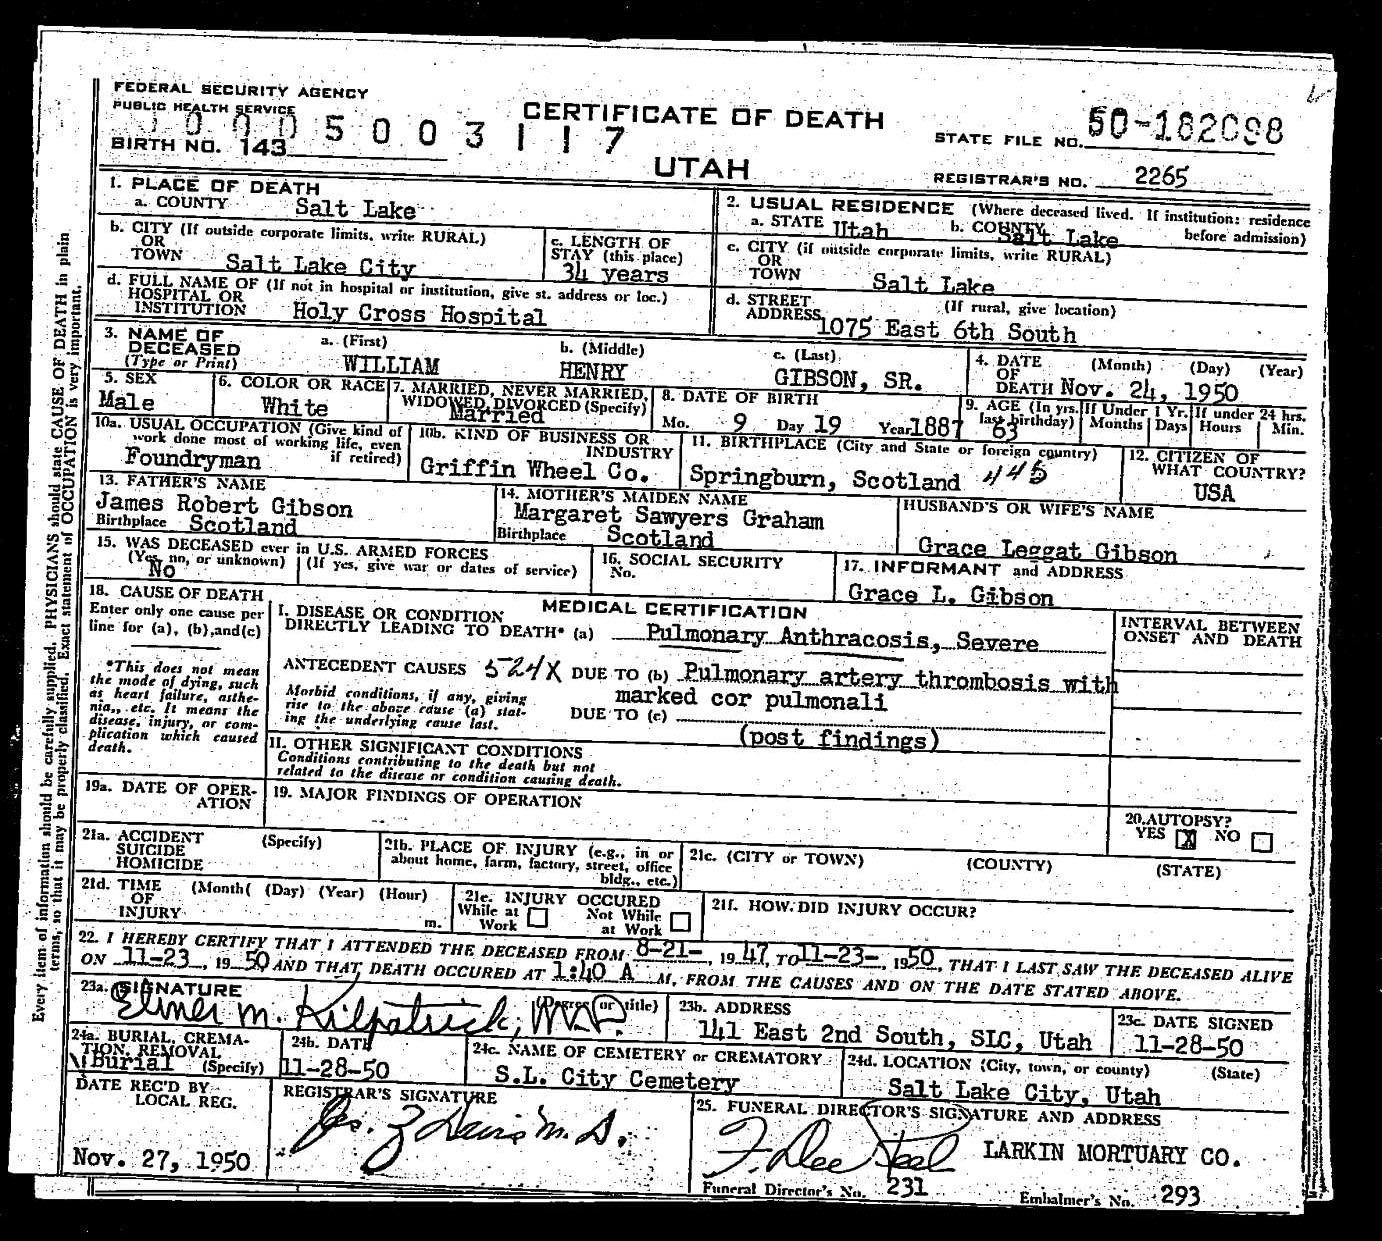 FEDERAL SECURITY AGENCY
PUBLIC HEALTH SERVICE
CERTIFICATE OF DEATH
UTAH
BIRTH NO. 143
5003117
STATE FILE NO. 50-182098
REGISTRAR'S NO. 2265
1. PLACE OF DEATH
a. COUNTY Salt Lake
2. USUAL RESIDENCE (Where deceased lived. If institution: residence before admission)
a. STATE Utah b. COUNTY Salt Lake
b. CITY (If outside corporate limits, write RURAL)
OR
TOWN Salt Lake City
c. LENGTH OF
STAY (this place)
34 years
c. CITY (if outside corporate limits, write RURAL)
OR
TOWN Salt Lake
d. FULL NAME OF (If not in hospital or institution, give st. address or loc.)
HOSPITAL OR
INSTITUTION Holy Cross Hospital
d. STREET (If rural, give location)
ADDRESS 1075 East 6th South
3. NAME OF
DECEASED
(Type or Print)
a. (First) b. (Middle) c. (Last)
WILLIAM HENRY GIBSON, SR.
4. DATE (Month) (Day) (Year)
OF
DEATH Nov. 24, 1950
5. SEX
Male
6. COLOR OR RACE
White
7. MARRIED, NEVER MARRIED,
WIDOWED, DIVORCED (Specify)
Married
8. DATE OF BIRTH
Mo. 9 Day 19 Year 1887
9. AGE (In yrs. last birthday) 63
If Under 1 Yr. Months Days
If under 24 hrs. Hours Min.
10a. USUAL OCCUPATION (Give kind of
work done most of working life, even
if retired)
Foundryman
10b. KIND OF BUSINESS OR
INDUSTRY
Griffin Wheel Co.
11. BIRTHPLACE (City and State or foreign country)
Springburn, Scotland 445
12. CITIZEN OF
WHAT COUNTRY?
USA
13. FATHER'S NAME
James Robert Gibson
Birthplace Scotland
14. MOTHER'S MAIDEN NAME
Margaret Sawyers Graham
Birthplace Scotland
HUSBAND'S OR WIFE'S NAME
Grace Leggat Gibson
15. WAS DECEASED ever in U.S. ARMED FORCES
(Yes, no, or unknown) (If yes, give war or dates of service)
No
16. SOCIAL SECURITY
No.
17. INFORMANT and ADDRESS
Grace L. Gibson
18. CAUSE OF DEATH
Enter only one cause per
line for (a), (b), and (c)
*This does not mean
the mode of dying, such
as heart failure, asthe-
nia,, etc. It means the
disease, injury, or com-
plication which caused
death.
MEDICAL CERTIFICATION
INTERVAL BETWEEN
ONSET AND DEATH
I. DISEASE OR CONDITION
DIRECTLY LEADING TO DEATH* (a) Pulmonary Anthracosis, Severe
ANTECEDENT CAUSES 524X DUE TO (b) Pulmonary artery thrombosis with
marked cor pulmonali
Morbid conditions, if any, giving
rise to the above cause (a) stat-
ing the underlying cause last.
DUE TO (c)
(post findings)
II. OTHER SIGNIFICANT CONDITIONS
Conditions contributing to the death but not
related to the disease or condition causing death.
19a. DATE OF OPER-
ATION
19. MAJOR FINDINGS OF OPERATION
20. AUTOPSY?
YES X NO
21a. ACCIDENT (Specify)
SUICIDE
HOMICIDE
21b. PLACE OF INJURY (e.g., in or
about home, farm, factory, street, office
bldg., etc.)
21c. (CITY or TOWN) (COUNTY) (STATE)
21d. TIME (Month( (Day) (Year) (Hour)
OF
INJURY m.
21e. INJURY OCCURED
While at Work Not While at Work
21f. HOW DID INJURY OCCUR?
22. I HEREBY CERTIFY THAT I ATTENDED THE DECEASED FROM 8-21-, 1947, TO 11-23-, 1950, THAT I LAST SAW THE DECEASED ALIVE
ON 11-23, 1950 AND THAT DEATH OCCURED AT 1:40 A M, FROM THE CAUSES AND ON THE DATE STATED ABOVE.
23a. SIGNATURE (Degree or title)
Elmer M. Kilpatrick, M.D.
23b. ADDRESS
141 East 2nd South, SLC, Utah
23c. DATE SIGNED
11-28-50
24a. BURIAL, CREMA-
TION, REMOVAL
(Specify)
Burial
24b. DATE
11-28-50
24c. NAME OF CEMETERY or CREMATORY
S.L. City Cemetery
24d. LOCATION (City, town, or county) (State)
Salt Lake City, Utah
DATE REC'D BY
LOCAL REG.
Nov. 27, 1950
REGISTRAR'S SIGNATURE
Davis M.D.
25. FUNERAL DIRECTOR'S SIGNATURE AND ADDRESS
LARKIN MORTUARY CO.
Funeral Director's No. 231
Embalmer's No. 293
Every item of information should be carefully supplied. PHYSICIANS should state CAUSE OF DEATH in plain
terms, so that it may be properly classified. Exact statement of OCCUPATION is very important.